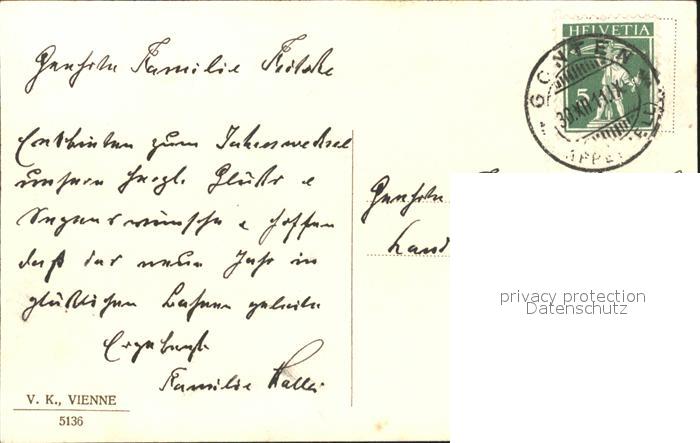 Geehrte Familie
Entbieten zum Jahreswechsel
unsere herzl. Glück- &
Segenswünsche & hoffen
daß das neue Jahr in
glücklichen Bahnen geleite
Ergebenst
Familie
V. K., VIENNE
5136
HELVETIA
5
GONTEN
30.XII.11.IX
(APPENZELL)
Geehrte
Land
privacy protection
Datenschutz